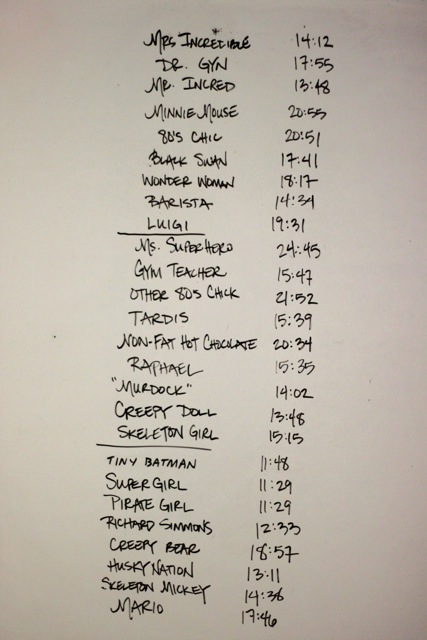 Mrs Incredible 14:12
Dr. Gyn 17:55
Mr. Incred 13:48
Minnie Mouse 20:55
80's Chic 20:51
Black Swan 17:41
Wonder Woman 18:17
Barista 14:34
Luigi 19:31
Ms. Superhero 24:45
Gym Teacher 15:47
Other 80's Chick 21:52
Tardis 15:39
Non-Fat Hot Chocolate 20:34
Raphael 15:35
"Murdock" 14:02
Creepy Doll 13:48
Skeleton Girl 15:15
Tiny Batman 11:48
Super Girl 11:29
Pirate Girl 11:29
Richard Simmons 12:33
Creepy Bear 18:57
Husky Nation 13:11
Skeleton Mickey 14:36
Mario 17:46